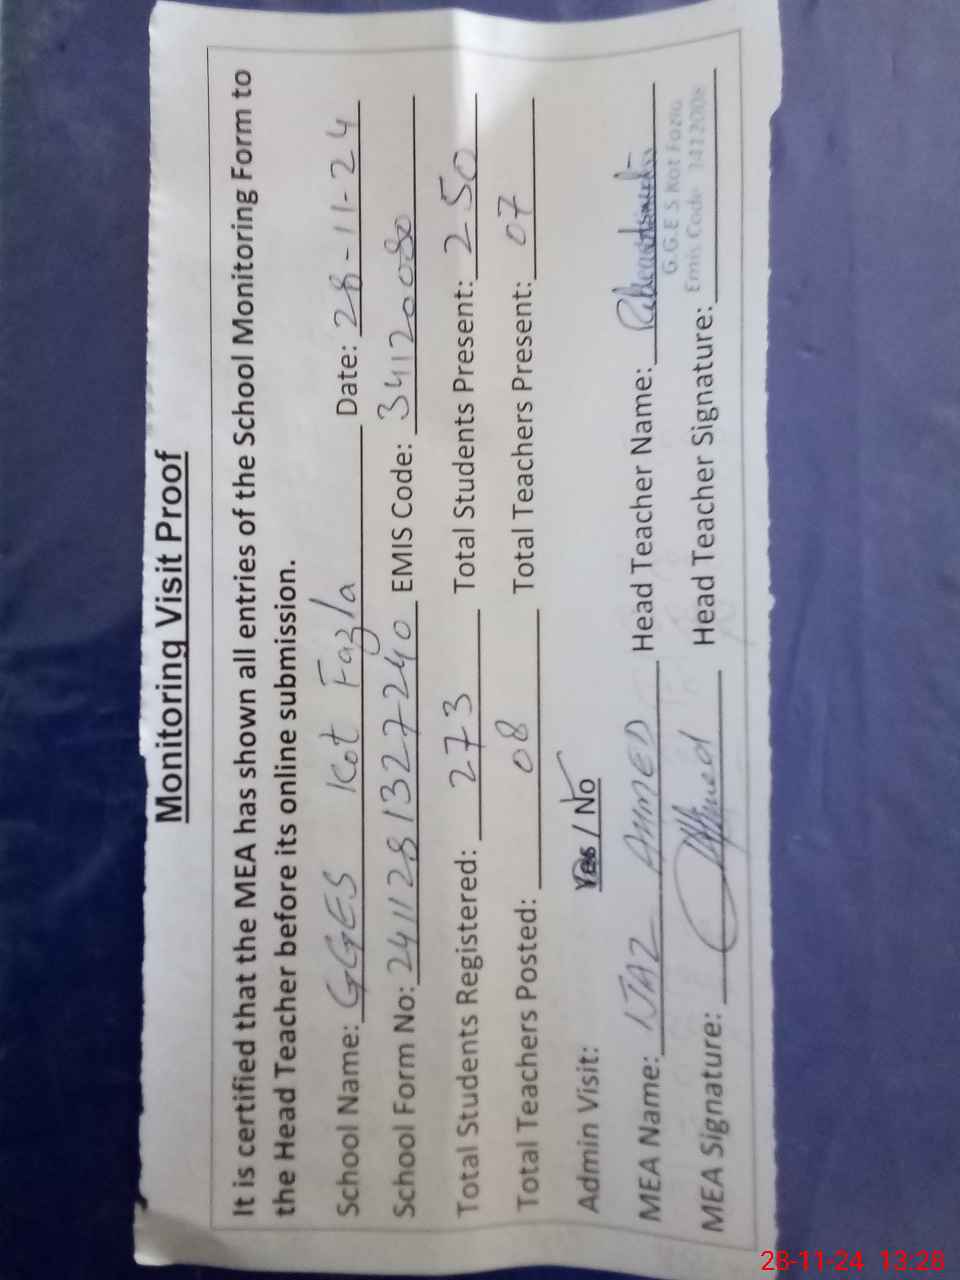 Monitoring Visit Proof
It is certified that the MEA has shown all entries of the School Monitoring Form to
the Head Teacher before its online submission.
School Name: GGES Kot Fazla Date: 28-11-24
School Form No: 2411281327240 EMIS Code: 34120080
Total Students Registered: 273 Total Students Present: 250
Total Teachers Posted: 08 Total Teachers Present: 07
Admin Visit: Yes / No
MEA Name: IJAZ AHMED Head Teacher Name:
G.G.E.S Kot Fazla
Emis Code
MEA Signature: Ahmed Head Teacher Signature:
28-11-24 13:28